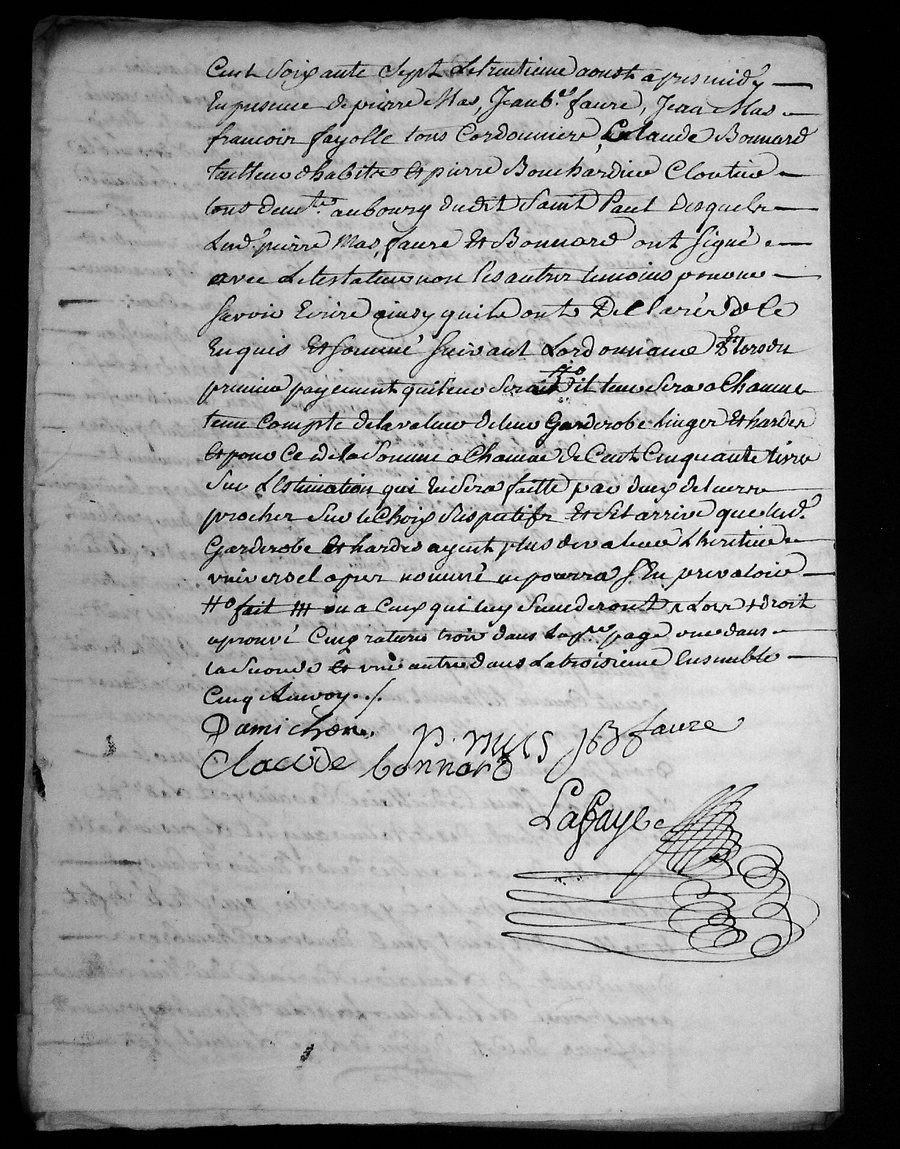 Cent soixante Sept Le trentieme aoust apres midy
En presence de pierre Mas, Jean b.te faure, Jean Mas
francois fayolle tous Cordonniers, Claude Bonnard
tailleur d'habits et pierre Bouchardier Cloutier
tous demt.s au bourg dudit Saint Paul desquels
Lesd. pierre Mas, faure et Bonnard ont signé
avec Le testateur non les autres temoins pour ne
savoir Ecrire ainsy quils ont Declaré de ce
Enquis Et sommé suivant Lordonnance lors du
premier payement quileur sera fait il leur sera a Chacune
tenu Compte de la valeur de leur Garderobe linges Et hardes
Et pour Ce de la Somme a Chacune de Cent Cinquante livres
Sur Lestimation qui En sera faitte par deux de leurs
proches sur le Choix Et sil arrive que lesd.
Garderobe Et hardes ayent plus de valeur L'heritier
universel apres nommé ne pourra s'En prevaloir
fait ou a Ceux qui luy Succederont a Loix et droit
aprouvé Cinq ratures trois dans La p.re page une dans
la Seconde Et une autre dans La troisieme Ensemble
Cinq Renvoy ./.
Damichon P. MAS JB faure
Claude bonnard
Lafaye